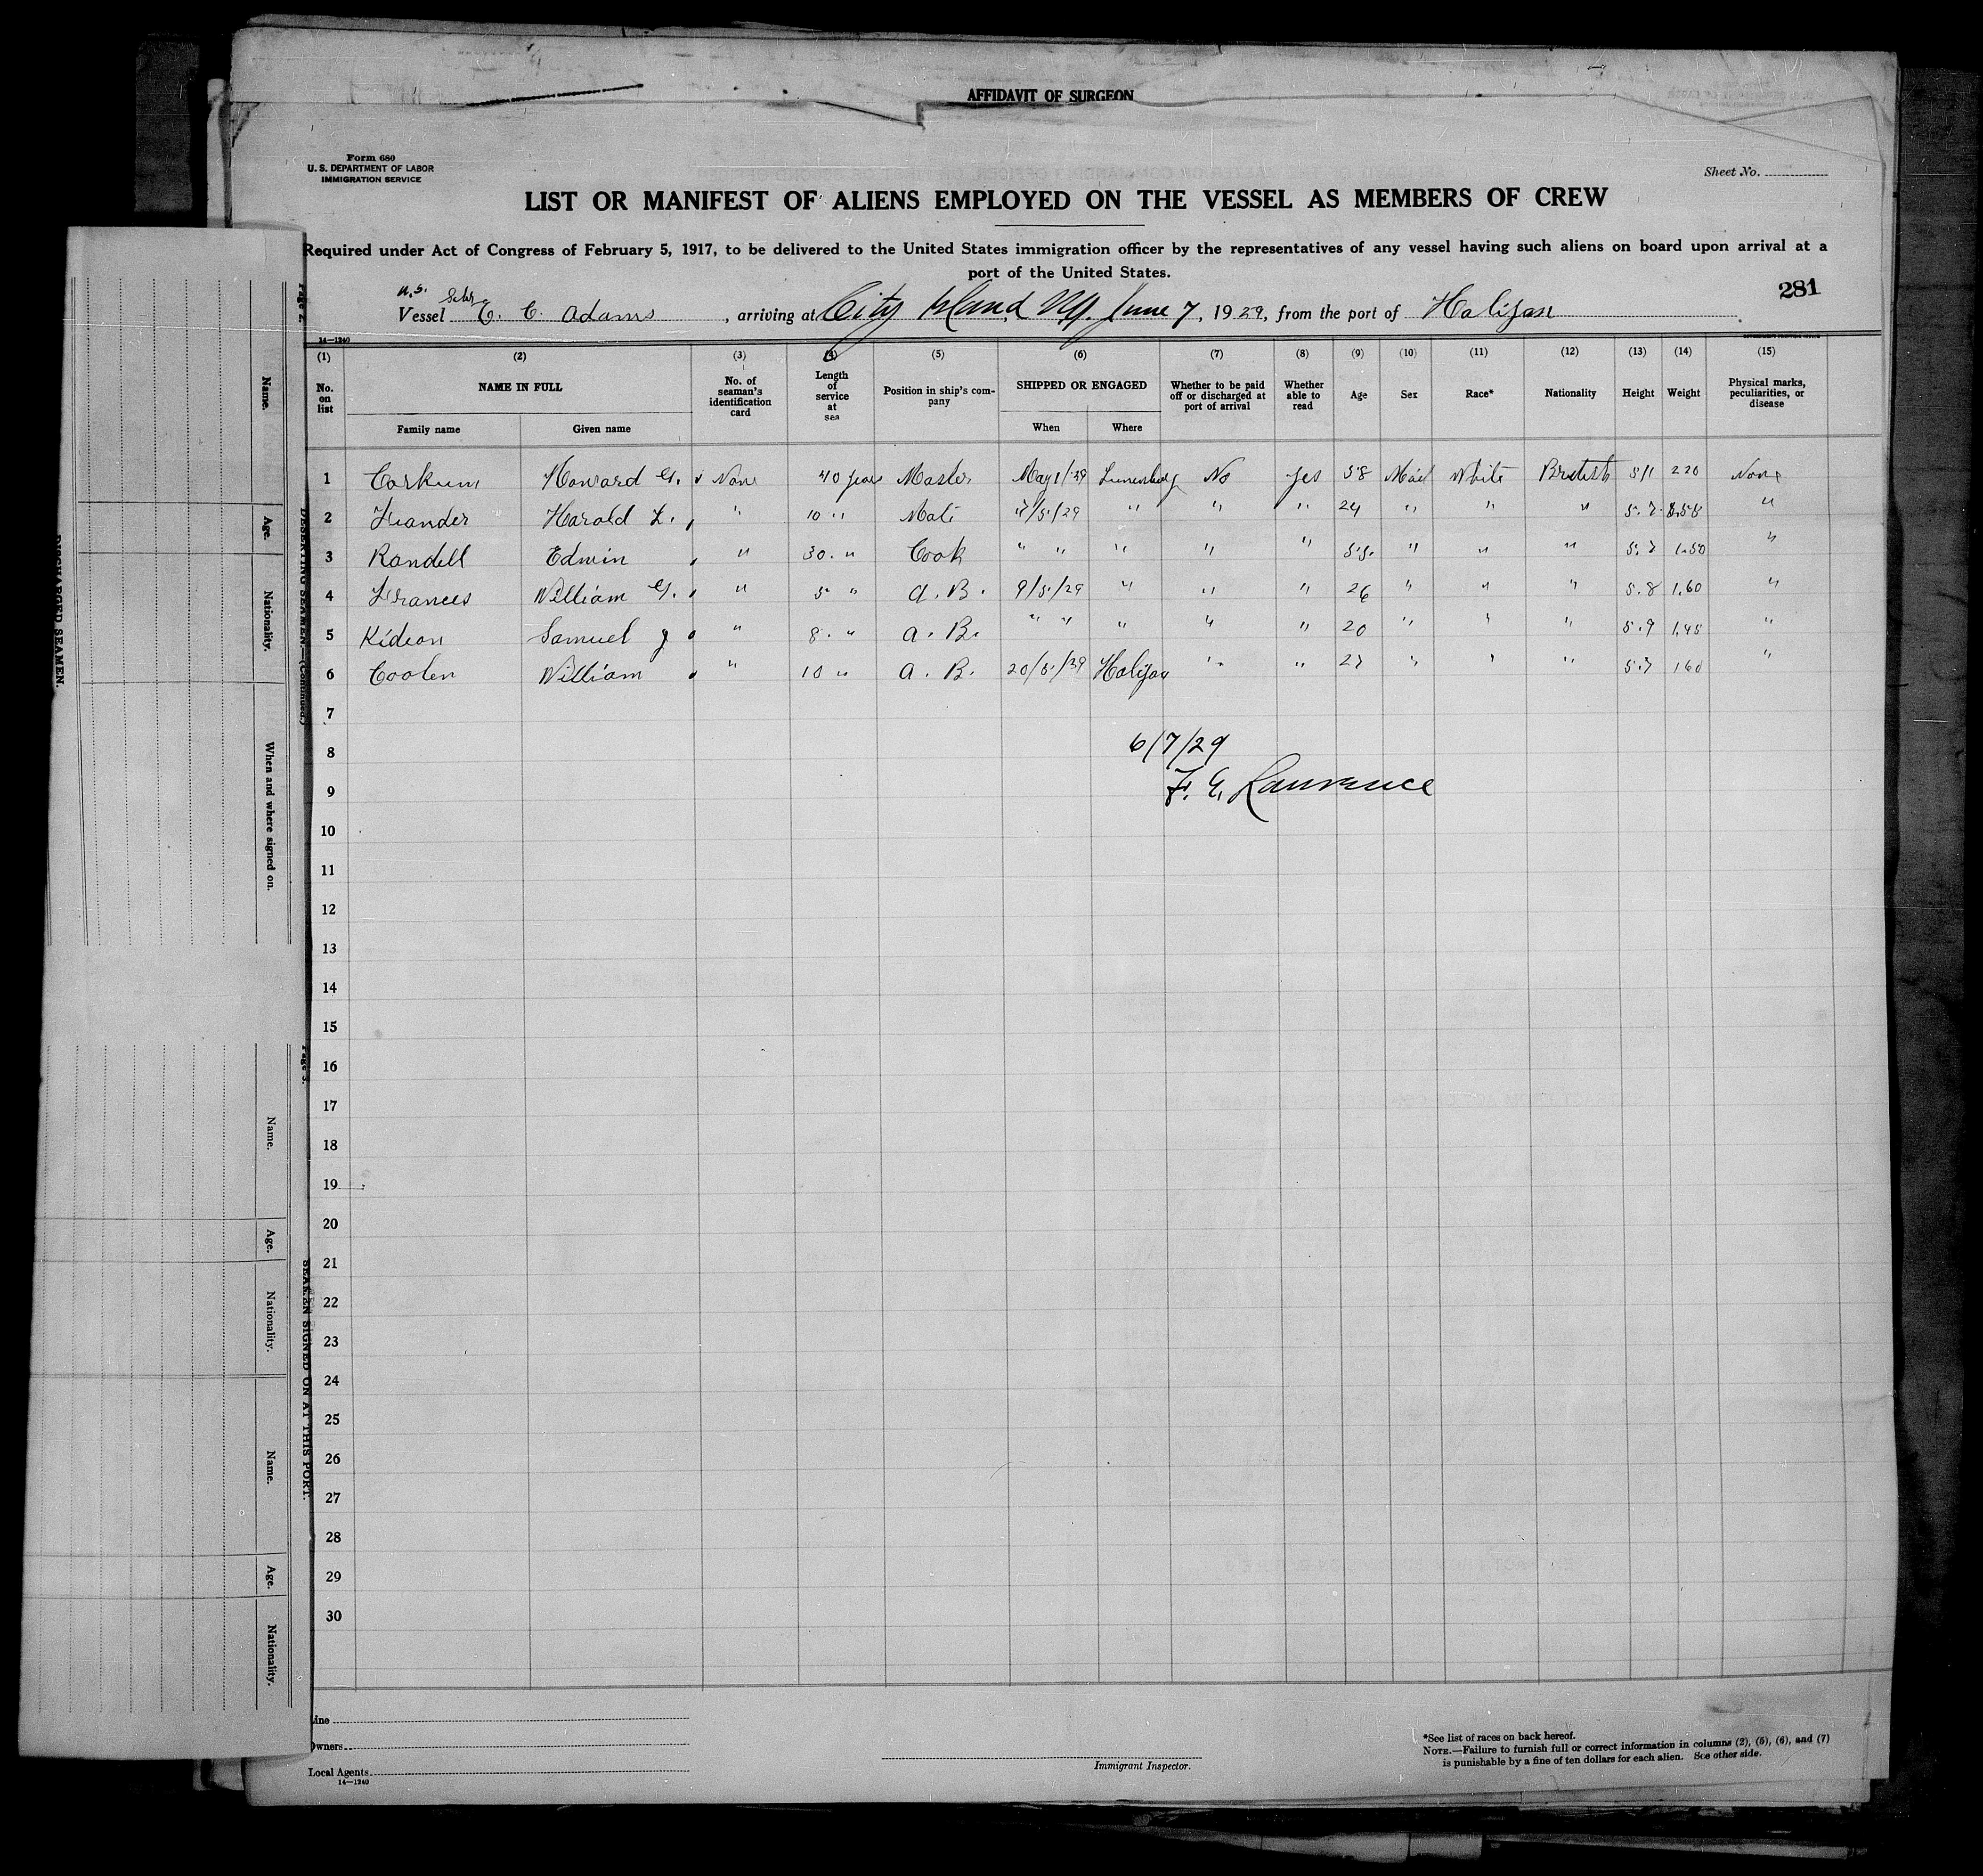 AFFIDAVIT OF SURGEON
Form 680
U. S. DEPARTMENT OF LABOR
IMMIGRATION SERVICE
Sheet No.
LIST OR MANIFEST OF ALIENS EMPLOYED ON THE VESSEL AS MEMBERS OF CREW
Required under Act of Congress of February 5, 1917, to be delivered to the United States immigration officer by the representatives of any vessel having such aliens on board upon arrival at a
port of the United States.
281
Vessel E. C. Adams, arriving at City Island, NY. June 7, 1929, from the port of Halifax
14—1240
(1) (2) (3) (4) (5) (6) (7) (8) (9) (10) (11) (12) (13) (14) (15)
No. on list
NAME IN FULL
Family name
Given name
No. of seaman's identification card
Length of service at sea
Position in ship's company
SHIPPED OR ENGAGED
When
Where
Whether to be paid off or discharged at port of arrival
Whether able to read
Age
Sex
Race*
Nationality
Height
Weight
Physical marks, peculiarities, or disease
1 Corkum Howard G. None 40 years Master May 1/29 Lunenburg No yes 58 Male White British 5/1 220 None
2 Harold L. " 10 " Mate /5/29 " " " 24 " " " 5.7 "
3 Randell Edwin " 30. " Cook " " " " " 55. " " " 5.7 1.50 "
4 Frances William G. " 5 " A. B. 9/5/29 " " " 26 " " " 5.8 1.60 "
5 Samuel J " 8. " A. B. " " " " " 20 " " " 5.9 1.45 "
6 Coolen William " 10 " A. B. 20/5/29 Halifax " " 27 " " " 5.7 160 "
7
8
6/7/29
9
F. E. Lawrence
10
11
12
13
14
15
16
17
18
19
20
21
22
23
24
25
26
27
28
29
30
Line
Owners
Local Agents
14—1240
Immigrant Inspector.
*See list of races on back hereof.
NOTE.—Failure to furnish full or correct information in columns (2), (5), (6), and (7)
is punishable by a fine of ten dollars for each alien. See other side.
Page 2.
DESERTING SEAMEN.—(Continued.)
DISCHARGED SEAMEN.
Name.
Age.
Nationality.
When and where signed on.
Page 3.
SEAMEN SIGNED ON AT THIS PORT.
Name.
Age.
Nationality.
Name.
Age.
Nationality.